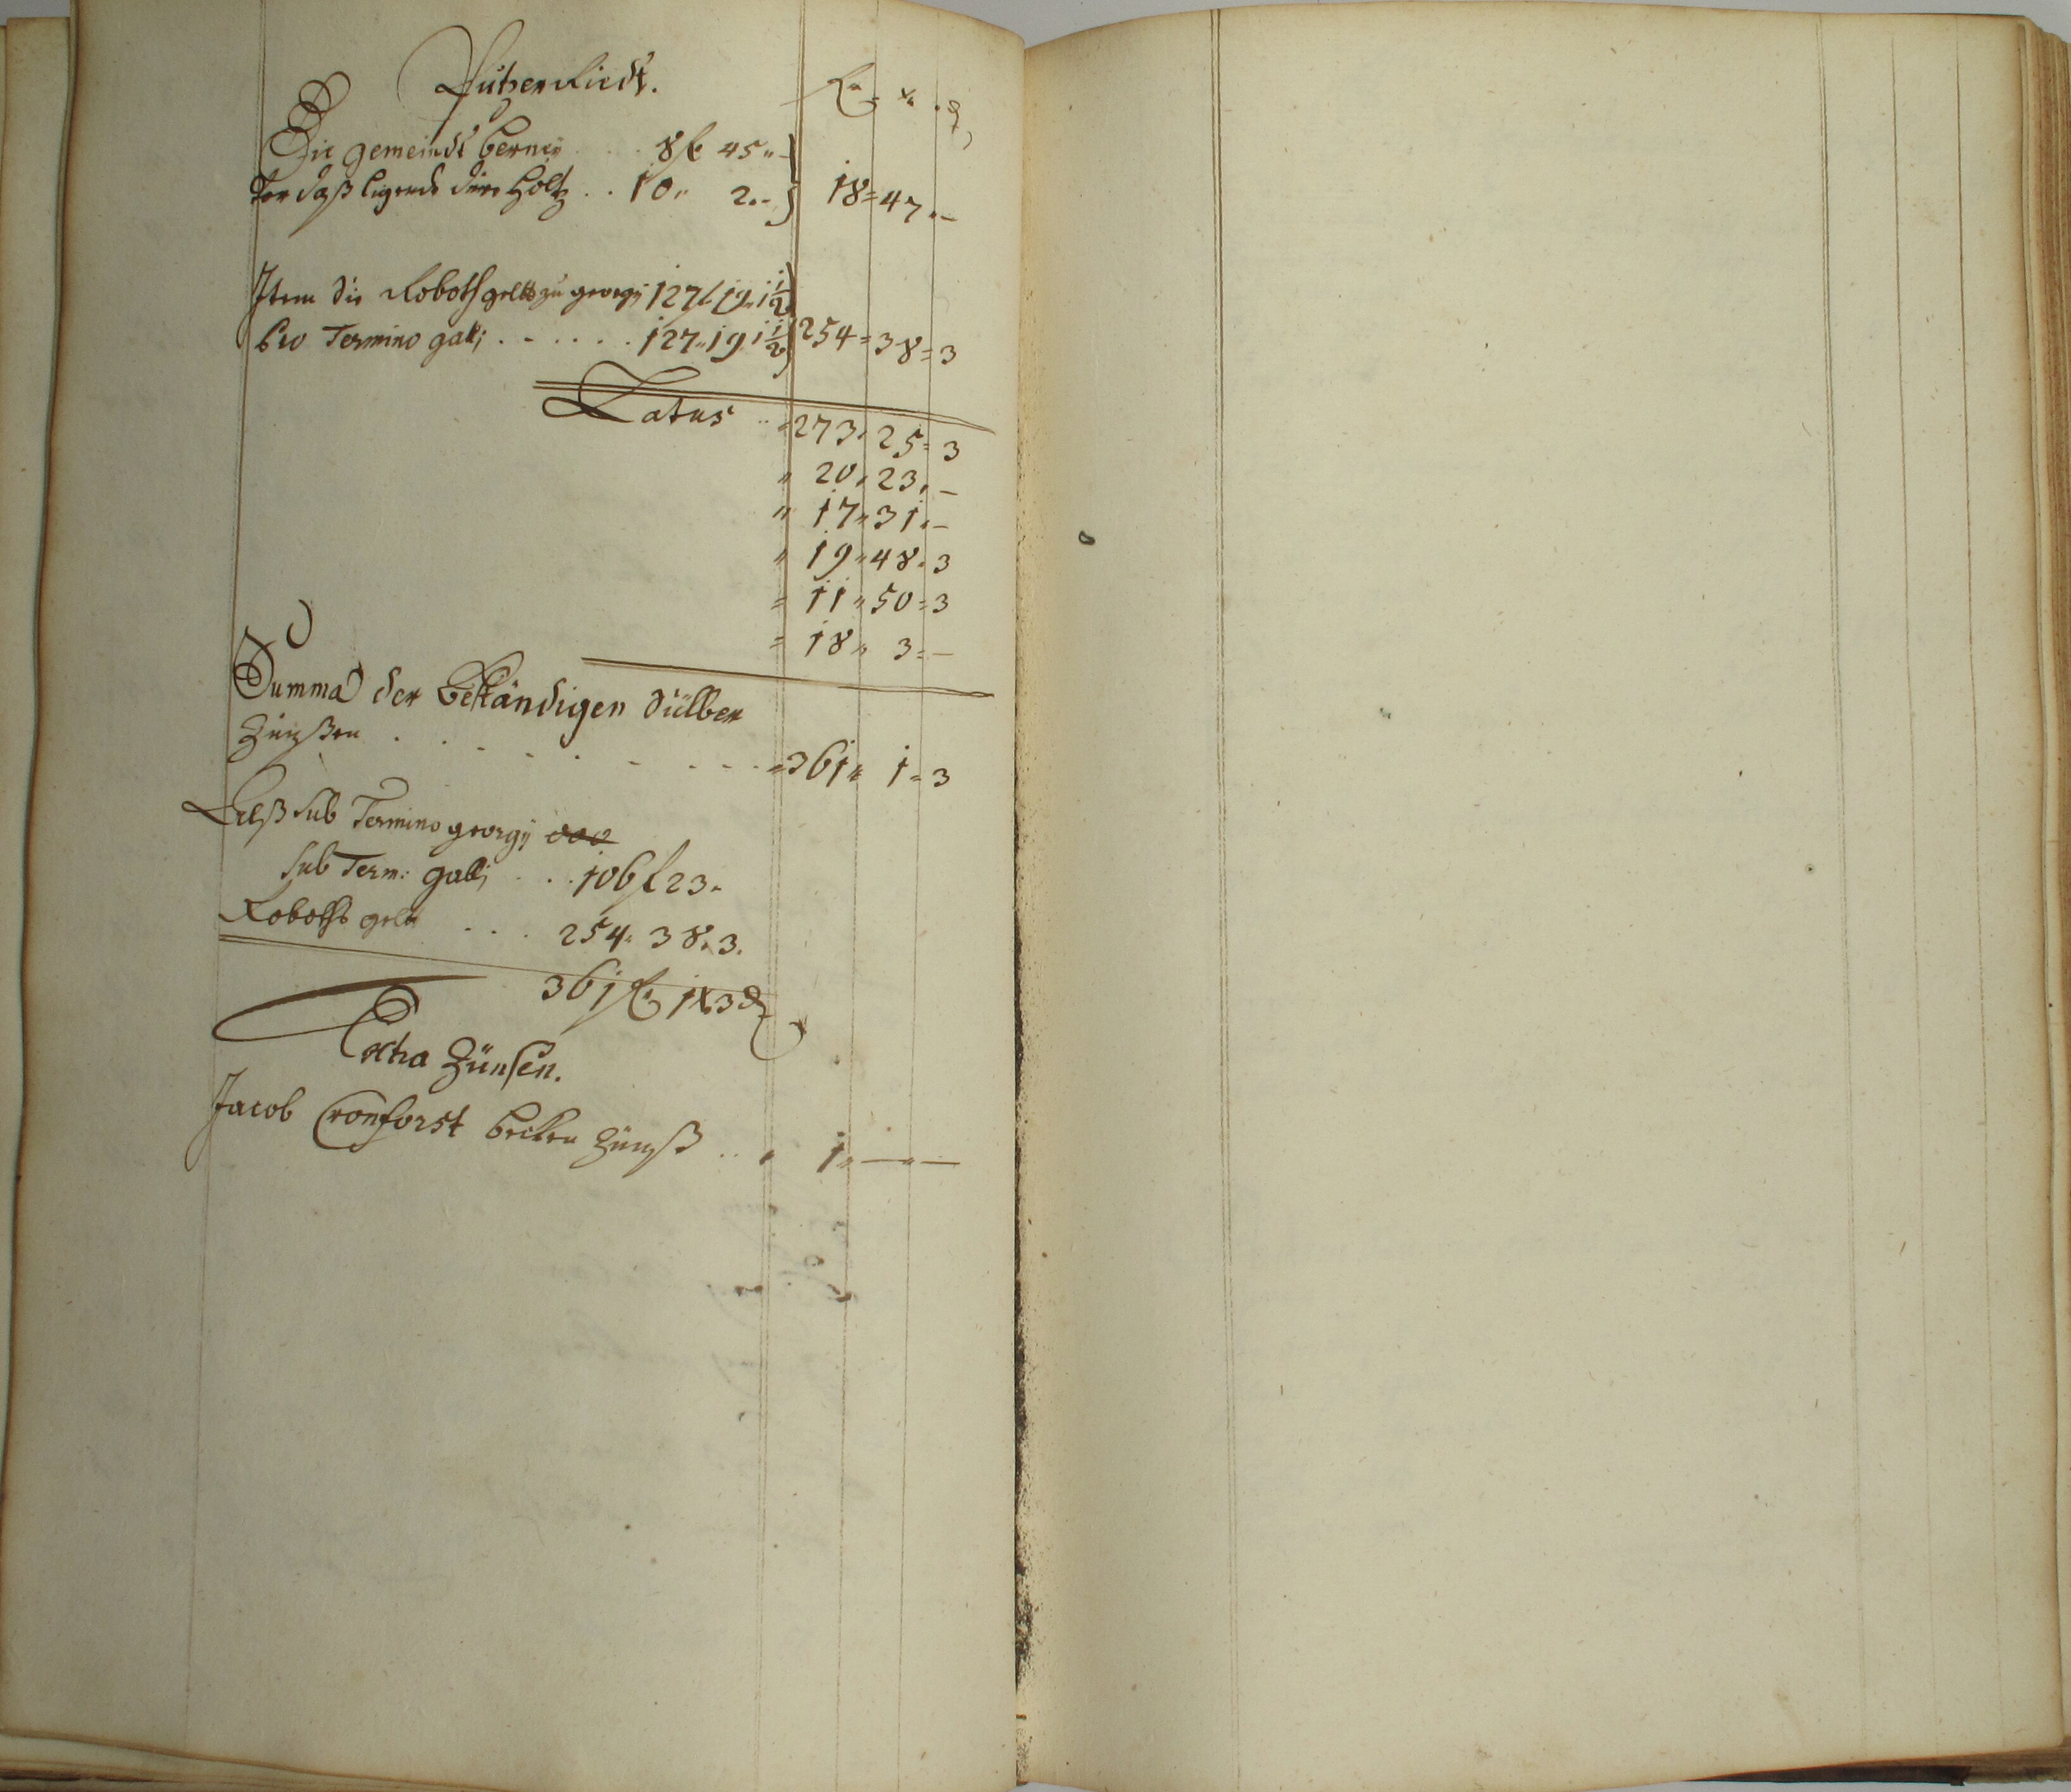 f. x. ₰
Die gemeindt 8 f 45 „ –
ligende dire Holtz . . 10 „ 2 „ – 18 = 47 „ –
Item die Roboth geldt zu georgij 127 f 19 „ 1 1/2
pro Termino galli . . . . . . 127 „ 19 „ 1 1/2 254 = 38 = 3
Latus . . 273 „ 25 = 3
„ 20 „ 23 „ –
„ 17 „ 31 „ –
„ 19 „ 48 „ 3
= 11 „ 50 = 3
= 18 „ 3 = –
Summa der Beständigen Silber
Zünßen . . . . . . . . . „ 361 „ 1 „ 3
Alß sub Termino georgij
sub Term: galli . . . 106 f 23 „
Roboth geldt . . . 254 „ 38 „ 3 .
361 f 1 x 3 ₰
Extra Zünsen.
Jacob Cronforst Zünß . . „ 1 „ — „ —